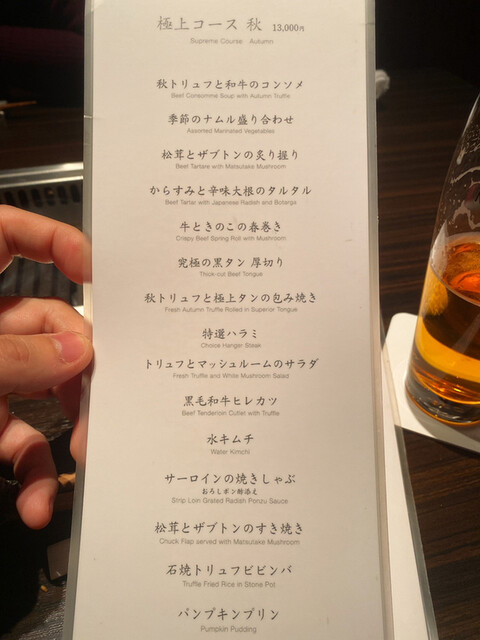 極上コース 秋 13,000円
Supreme Course Autumn
秋トリュフと和牛のコンソメ
Beef Consomme Soup with Autumn Truffle
季節のナムル盛り合わせ
Assorted Marinated Vegetables
松茸とザブトンの炙り握り
Beef Tartare with Matsutake Mushroom
からすみと辛味大根のタルタル
Beef Tartar with Japanese Radish and Botarga
牛ときのこの春巻き
Crispy Beef Spring Roll with Mushroom
究極の黒タン 厚切り
Thick-cut Beef Tongue
秋トリュフと極上タンの包み焼き
Fresh Autumn Truffle Rolled in Superior Tongue
特選ハラミ
Choice Hanger Steak
トリュフとマッシュルームのサラダ
Fresh Truffle and White Mushroom Salad
黒毛和牛ヒレカツ
Beef Tenderloin Cutlet with Truffle
水キムチ
Water Kimchi
サーロインの焼きしゃぶ
おろしポン酢添え
Strip Loin Grated Radish Ponzu Sauce
松茸とザブトンのすき焼き
Chuck Flap served with Matsutake Mushroom
石焼トリュフビビンバ
Truffle Fried Rice in Stone Pot
パンプキンプリン
Pumpkin Pudding